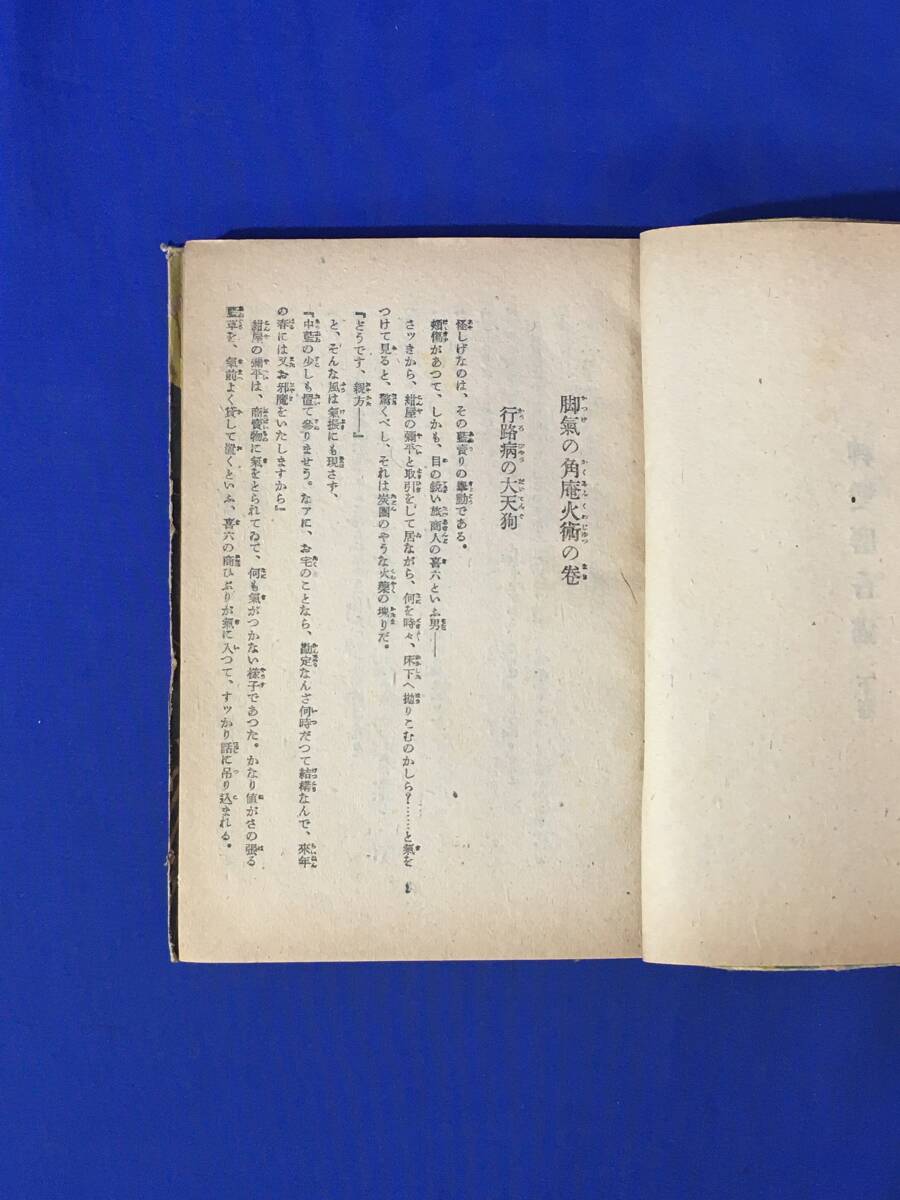 脚氣の角庵火術の卷
行路病の大天狗
怪しげなのは、その藍賣りの擧動である。
頬傷があつて、しかも、目の鋭い旅商人の喜六といふ男――
さッきから、紺屋の彌平と取引をして居ながら、何を時々、床下へ抛りこむのかしら?……と氣を
つけて見ると、驚くべし、それは炭團のやうな火藥の塊りだ。
『どうです、親方――』
と、そんな風は氣振にも現さず、
『中藍の少しも置て參りませう。なアに、お宅のことなら、勘定なんざ何時だつて結構なんで、來年
の春には又お邪魔をいたしますから』
紺屋の彌平は、商賣物に氣をとられてゐて、何も氣がつかない樣子であつた。かなり値がさの張る
藍草を、氣前よく貸して置くといふ、喜六の商ひぶりが氣に入つて、すッかり話に吊り込まれる。
1